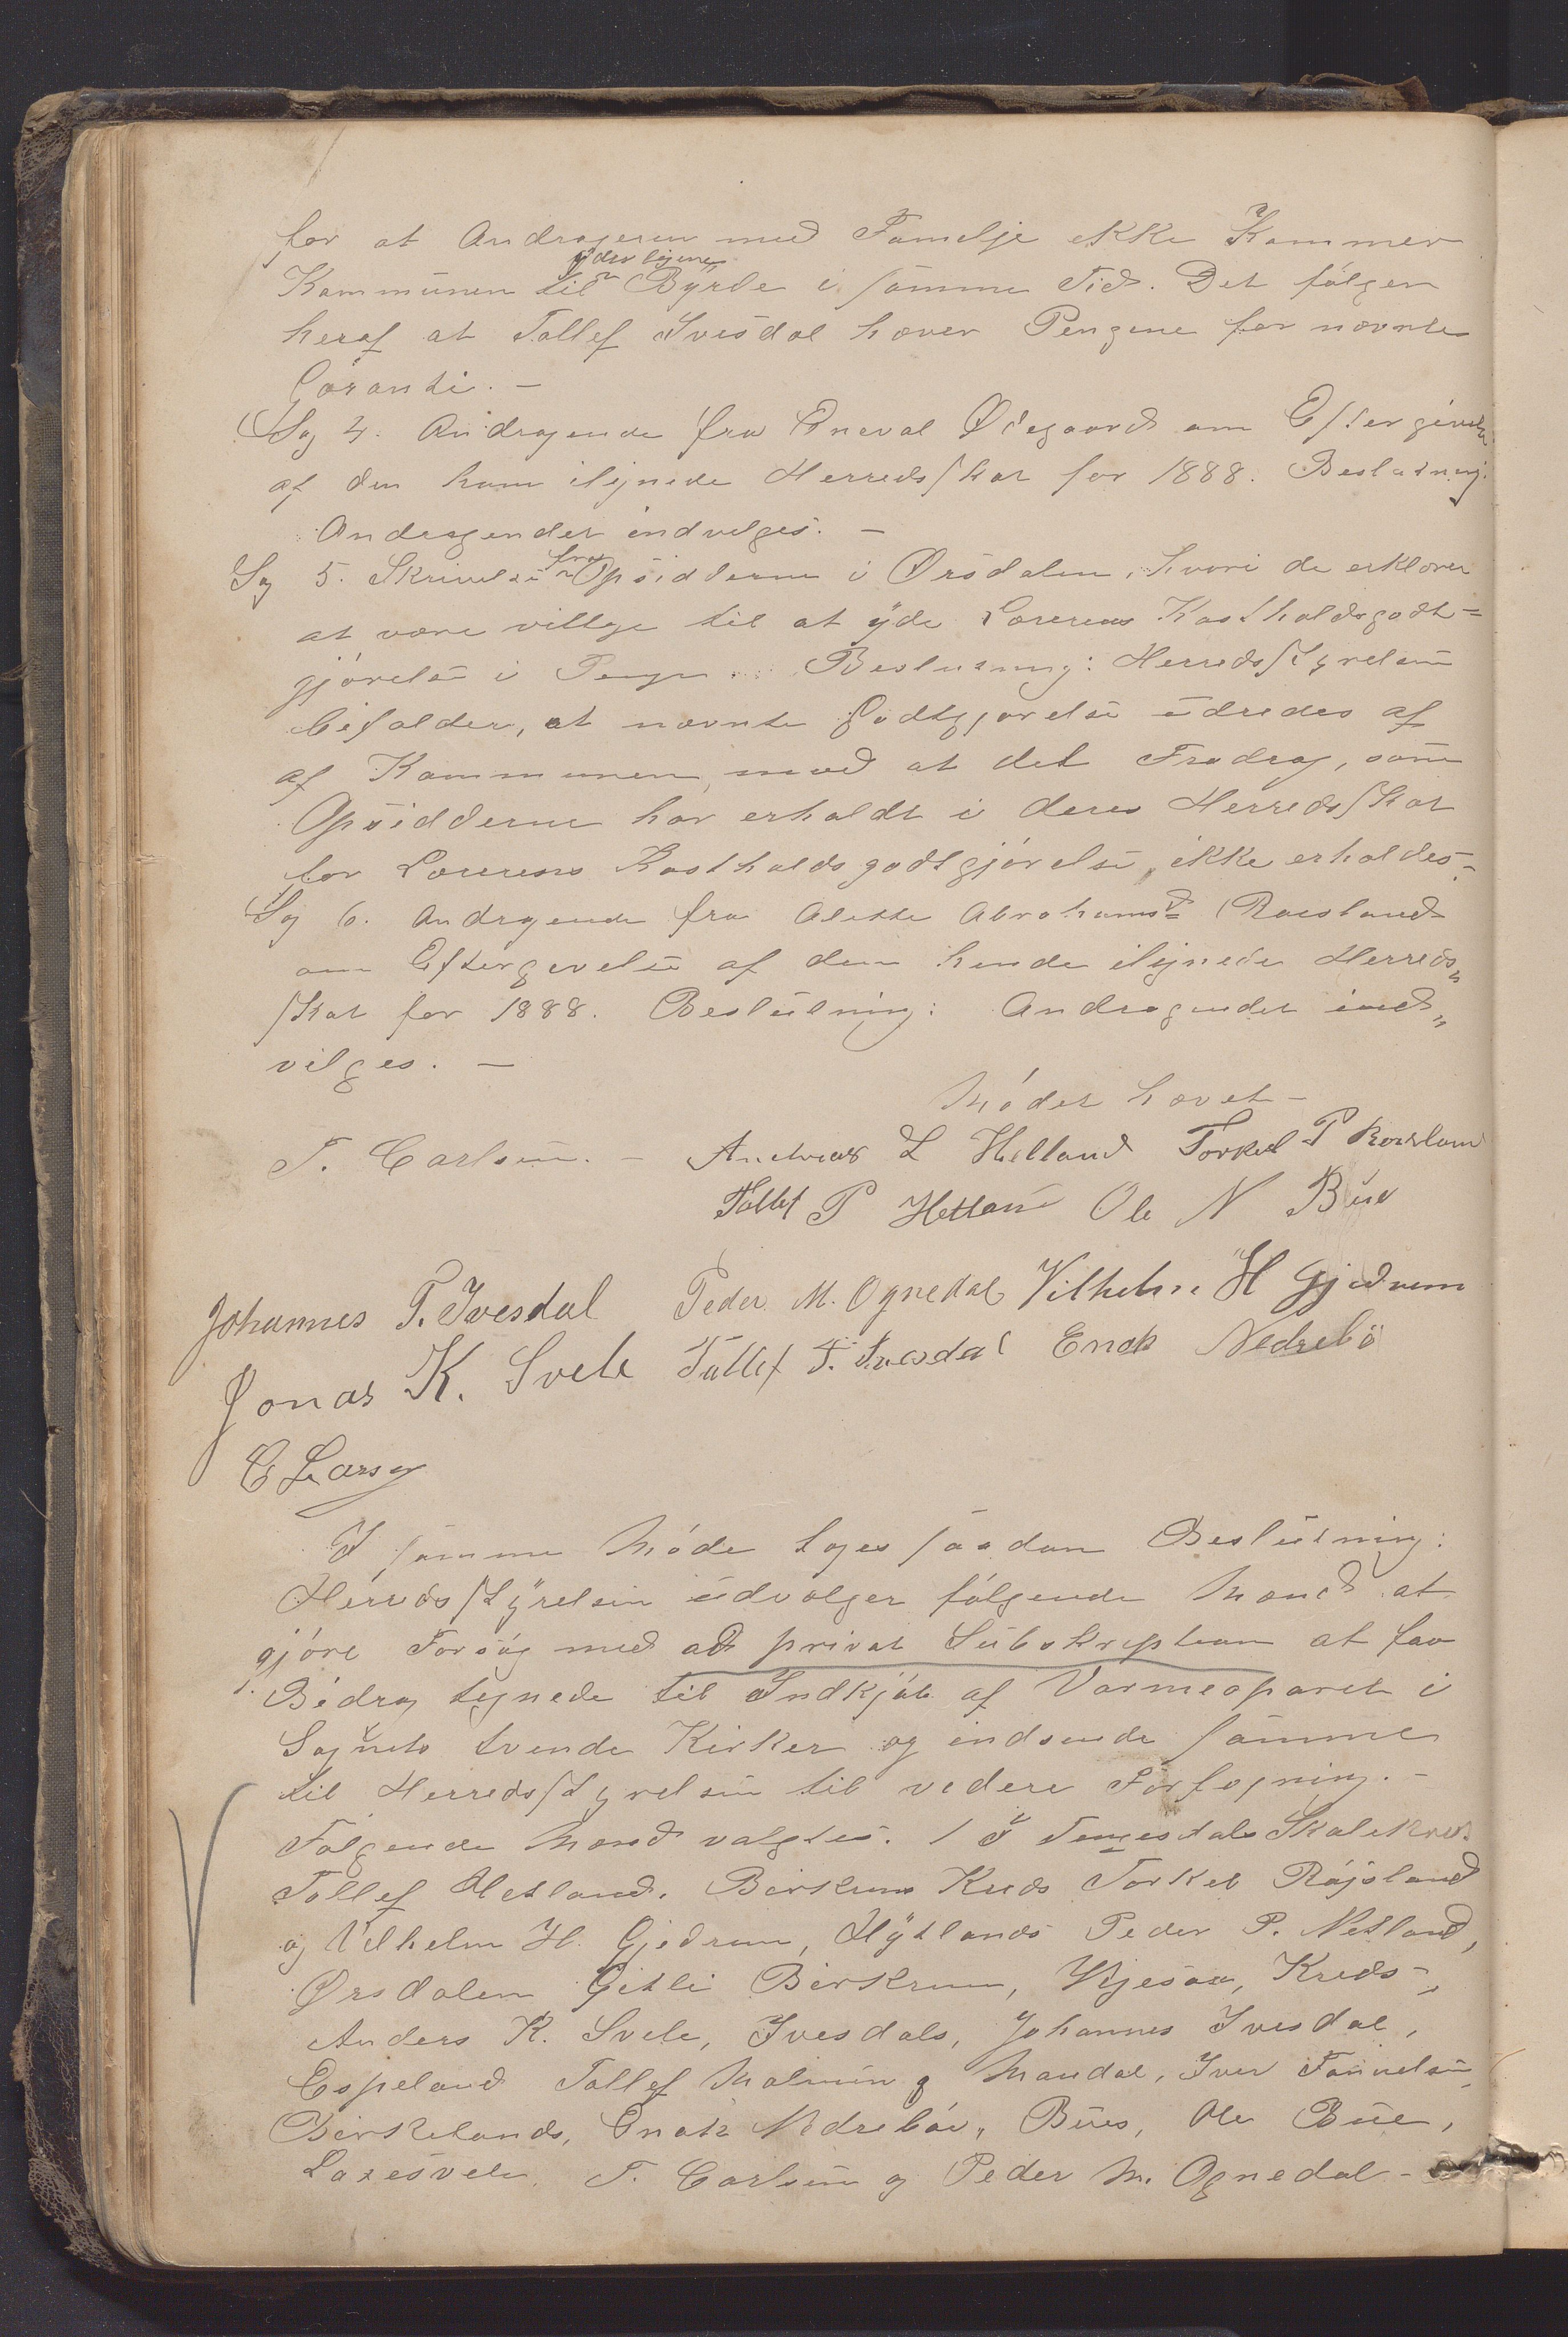 for at Andrageren med Familje ikke Kommer
Kommunen til yderligere Byrde i samme Tid. Det følger
heraf at Tollef Ivesdal hæver Pengene for nævnte
Garanti. —
Sag 4. Andragende fra Eneval Ødegaard om Eftergivelse
af den ham ilignede Herredsskat for 1888. Beslutning:
Andragendet indvilges. —
Sag 5. Skrivelse fra Opsidderne i Ørsdalen, hvori de erklærer
at være villige til at yde Lærerens Kostholdsgodt-
gjørelse i Penge. Beslutning: Herredsstyrelsen
bifalder, at nævnte Godtgjørelse udredes af
af Kommunen, mod at det Fradrag, som
Opsidderne har erholdt i deres Herredsskat
for Lærerens Kostholdsgodtgjørelse, ikke erholdes. -
Sag 6. Andragende fra Alette Abrahamsd Røisland
om Eftergivelse af den hende ilignede Herreds„
skat for 1888. Beslutning: Andragendet ind„
vilges. —
Mødet hævet —
T. Carlsen. — Andreas L Helland Torkel P Røisland
Tollef P Hetland Ole N Bue
Johannes T. Ivesdal Peder M. Ognedal Vilhelm H Gjedrem
Jonas K. Svele Tollef T. Ivesdal Enok Nedrebö
C Larsen
I samme Møde toges saadan Beslutning:
Herredsstyrelsen udvælger følgende Mænd at
gjøre Forsøg med ad privat Subskription at faa
Bidrag tegnede til Indkjøb af Varmeaparet i
Sognets tvende Kirker og indsende samme
til Herredsstyrelsen til videre Forføgning. —
Følgende Mænd valgtes. I Tengesdals Skolekreds
Tollef Hetland, Birkrems Kreds Torkel Røjsland
og Vilhelm H. Gjedrem, Hytlands Peder P. Netland,
Ørsdalen Gitle Birkrem, Stjesaa, Kreds-,
Anders K. Svele, Ivesdals, Johannes Ivesdal,
Espeland Tollef Malmin og Maudal, Iver Tønnesen,
Birkelands, Enok Nedrebøe, Bues, Ole Bue,
Laxesvele, T. Carlsen og Peder M. Ognedal —